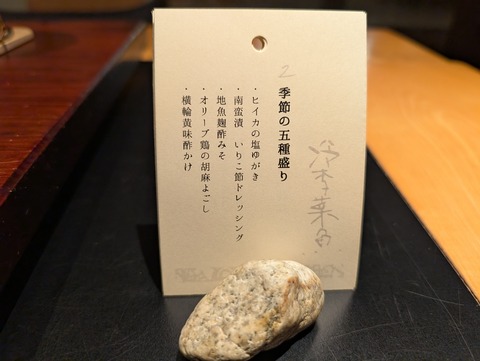 2
季節の五種盛り
・ヒイカの塩ゆがき
・南蛮漬　いりこ節ドレッシング
・地魚麹酢みそ
・オリーブ鶏の胡麻よごし
・横輪黄味酢かけ